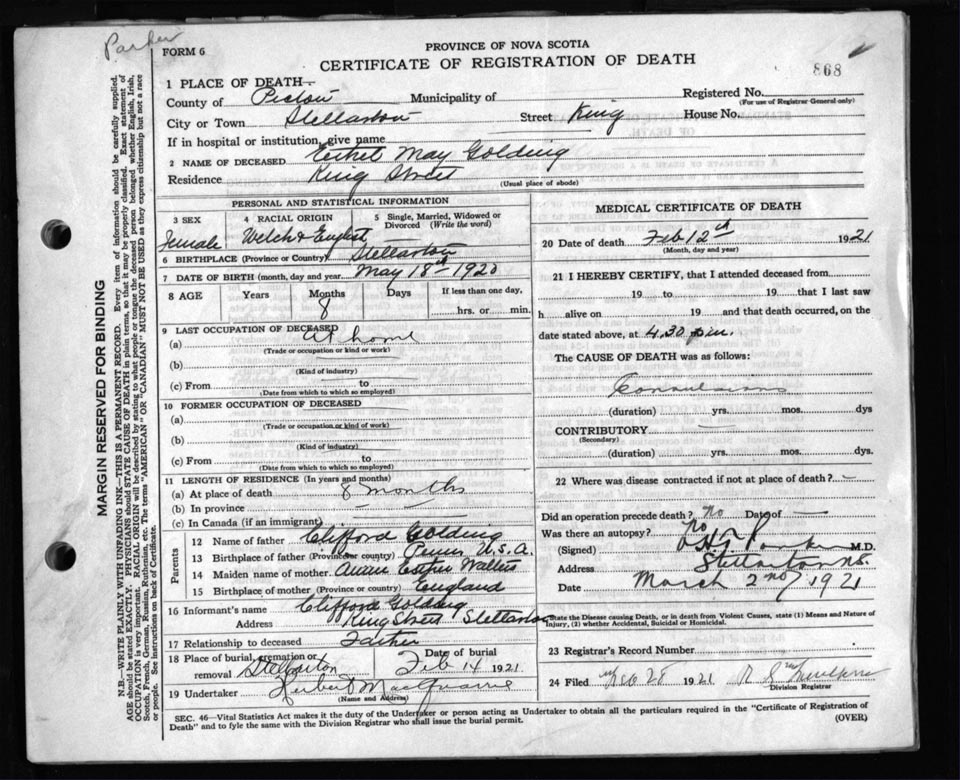 Parker
FORM 6
PROVINCE OF NOVA SCOTIA
CERTIFICATE OF REGISTRATION OF DEATH
868
1 PLACE OF DEATH—
County of Pictou Municipality of Registered No.
(For use of Registrar General only)
City or Town Stellarton Street King House No.
If in hospital or institution, give name
2 NAME OF DECEASED Ethel May Golding
Residence King Street
(Usual place of abode)
PERSONAL AND STATISTICAL INFORMATION
3 SEX 4 RACIAL ORIGIN 5 Single, Married, Widowed or Divorced (Write the word)
Female Welch & English
6 BIRTHPLACE (Province or Country) Stellarton
7 DATE OF BIRTH (month, day and year) May 18th 1920
8 AGE Years Months Days If less than one day,
8 hrs. or min.
9 LAST OCCUPATION OF DECEASED
(a) at home
(Trade or occupation or kind or work)
(b)
(Kind of industry)
(c) From to
(Date from which to which so employed)
10 FORMER OCCUPATION OF DECEASED
(a)
(Trade or occupation or kind of work)
(b)
(Kind of industry)
(c) From to
(Date from which to which so employed)
11 LENGTH OF RESIDENCE (In years and months)
(a) At place of death 8 months
(b) In province
(c) In Canada (if an immigrant)
Parents
12 Name of father Clifford Golding
13 Birthplace of father (Province or country) Penn U.S.A.
14 Maiden name of mother Esther
15 Birthplace of mother (Province or country) England
16 Informant's name Clifford Golding
Address King Street Stellarton
17 Relationship to deceased Father
18 Place of burial, cremation or removal Stellarton Date of burial Feb 14 1921
19 Undertaker Herbert
(Name and Address)
MEDICAL CERTIFICATE OF DEATH
20 Date of death Feb 12th 1921
(Month, day and year)
21 I HEREBY CERTIFY, that I attended deceased from
19 to 19 that I last saw
h alive on 19 and that death occurred, on the
date stated above, at 4.30 p.m.
The CAUSE OF DEATH was as follows:
Convulsions
(duration) yrs. mos. dys
CONTRIBUTORY —
(Secondary)
(duration) yrs. mos. dys.
22 Where was disease contracted if not at place of death? —
Did an operation precede death? No Date of —
Was there an autopsy? No
(Signed) Parker M.D.
Address Stellarton N.S.
Date March 2nd 1921
State the Disease causing Death, or in death from Violent Causes, state (1) Means and Nature of
Injury, (2) whether Accidental, Suicidal or Homicidal.
23 Registrar's Record Number
24 Filed Feb 28 1921
Division Registrar
SEC. 46—Vital Statistics Act makes it the duty of the Undertaker or person acting as Undertaker to obtain all the particulars required in the "Certificate of Registration of
Death" and to fyle the same with the Division Registrar who shall issue the burial permit.
(OVER)
MARGIN RESERVED FOR BINDING
N.B.—WRITE PLAINLY WITH UNFADING INK—THIS IS A PERMANENT RECORD. Every item of information should be carefully supplied.
AGE should be stated EXACTLY. PHYSICIANS should STATE CAUSE OF DEATH in plain terms, so that it may be properly classified. Exact statement of
OCCUPATION is very important. RACIAL ORIGIN will be described by stating to what people or tongue the deceased person belonged whether English, Irish,
Scotch, French, German, Russian, Ruthenian, etc. The terms "AMERICAN" OR "CANADIAN" MUST NOT BE USED as they express citizenship but not a race
or people. See instructions on back of Certificate.